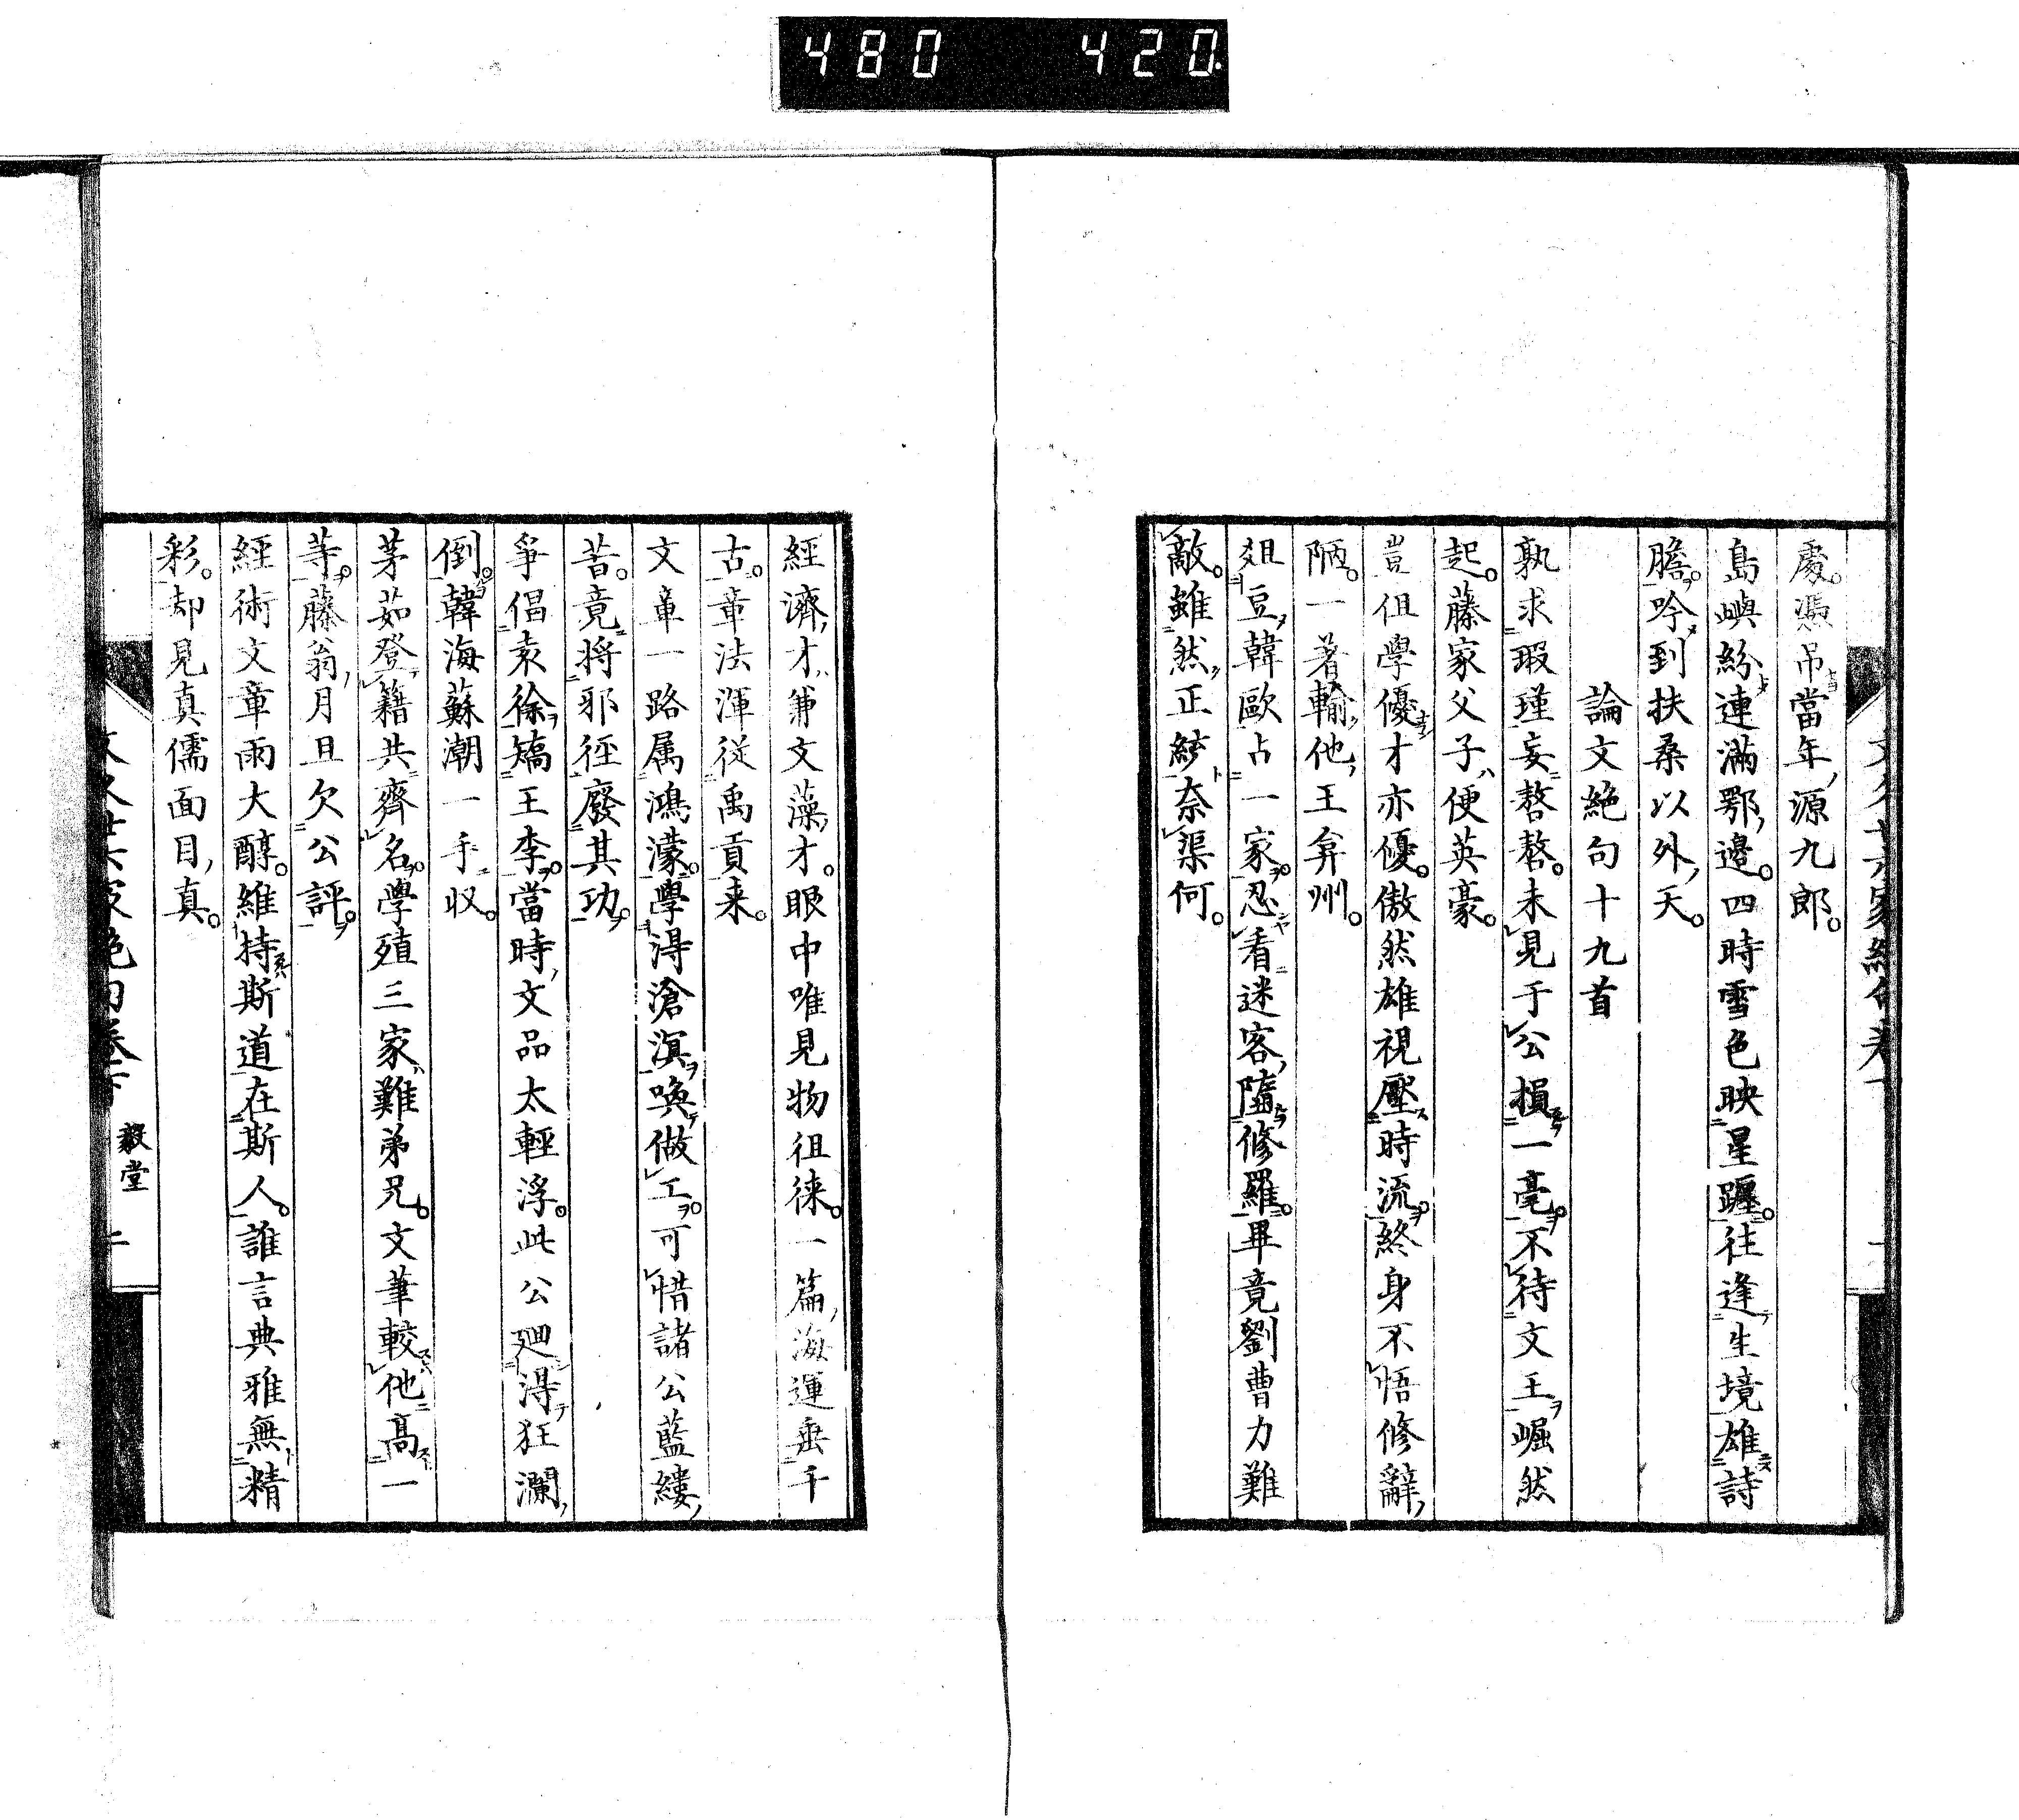 480 420
處。馮吊當年源九郎。
島嶼紛連滿鄂邊。四時雪色映星躔。往逢生境雄詩
膽。吟到扶桑以外天。
論文絕句十九首
孰求瑕瑾妄嗸嗸。未見于公損一毫。不待文王崛然
起。藤家父子便英豪。
豈但學優才亦優。傲然雄視壓時流。終身不悟修辭
陋。一著輸他王弇州。
爼豆韓歐占一家。忍看迷客墮修羅。畢竟劉曹力難
敵。雖然正統奈渠何。
經濟才兼文藻才。眼中唯見物徂徠。一篇海運垂千
古。章法渾從禹貢来。
文章一路属鴻濛。學得滄溟喚做工。可惜諸公藍縷
苦。竟將邪徑廢其功。
爭倡袁徐矯王李。當時文品太輕浮。此公廻得狂瀾
倒。韓海蘇潮一手収。
茅茹登籍共齊名。學殖三家難弟兄。文筆較他高一
等。藤翁月旦欠公評。
經術文章兩大醇。維持斯道在斯人。誰言典雅無精
彩。却見真儒面目真。
毅堂